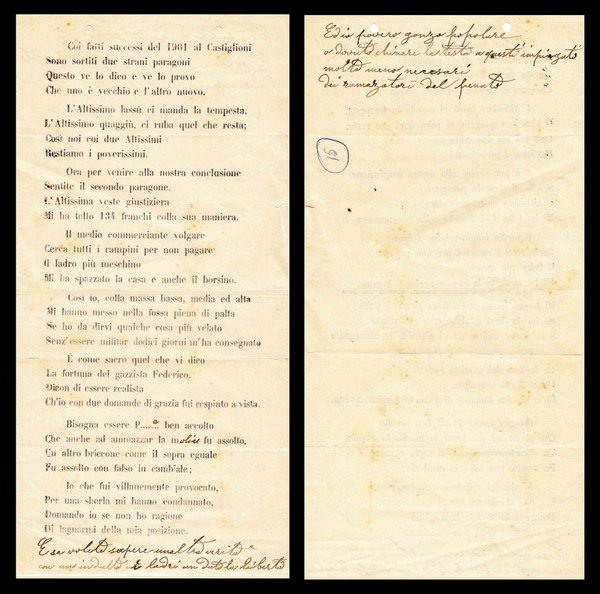 Coi fatti successi del 1901 al Castiglioni
Sono sortiti due strani paragoni
Questo ve lo dico e ve lo provo
Che uno è vecchio e l'altro nuovo.
L'Altissimo lassù ci manda la tempesta,
L'Altissimo quaggiù, ci ruba quel che resta;
Così noi coi due Altissimi
Restiamo i poverissimi.
Ora per venire alla nostra conclusione
Sentite il secondo paragone.
L'Altissima veste giustiziera
Mi ha tolto 134 franchi colla sua maniera.
Il medio commerciante volgare
Cerca tutti i rampini per non pagare
Il ladro più meschino
Mi ha spazzato la casa e anche il borsino.
Così io, colla massa bassa, media ed alta
Mi hanno messo nella fossa piena di palta
Se ho da dirvi qualche cosa più velato
Senz'essere militar dodici giorni m'ha consegnato
È come sacro quel che vi dico
La fortuna del gazzista Federico.
Dicon di essere realista
Ch'io con due domande di grazia fui respinto a vista.
Bisogna essere P.....e ben accolto
Che anche ad ammazzar la molie fu assolto.
Un altro briccone come il sopra eguale
Fu assolto con falso in cambiale;
Io che fui villanemente provocato,
Per una sberla mi hanno condannato,
Domando io se non ho ragione
Di lagnarmi della mia posizione.
E se volete sapere unaltra verità
con un indulto ai ladri an dato la libertà
Ed io povero gonzo popolare
o dovuto chinare la testa a questi impiegati
molto meno necesari
dei ramazatori del fenato
15